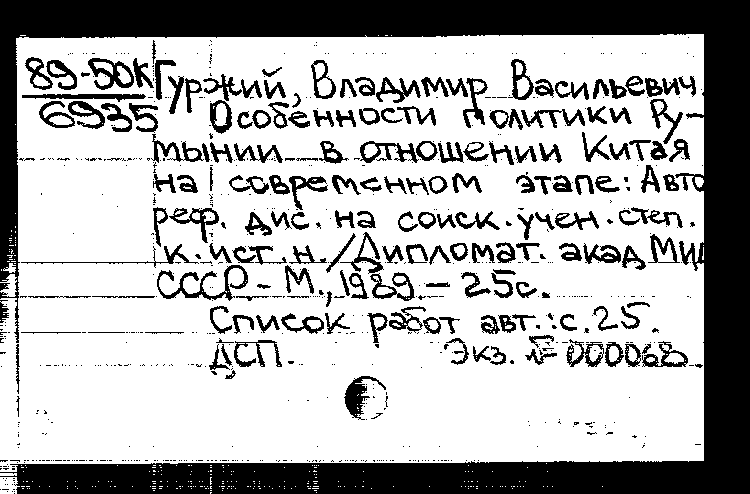 89-50К Гуржий, Владимир Васильевич.
6935 Особенности политики Ру-
мынии в отношении Китая
на современном этапе: Авто
реф. дис. на соиск. учен. степ.
к. ист. н. / Дипломат. акад МИД
СССР. - М., 1989. - 25с.
Список работ авт.: с. 25.
ДСП. Экз. № 000068